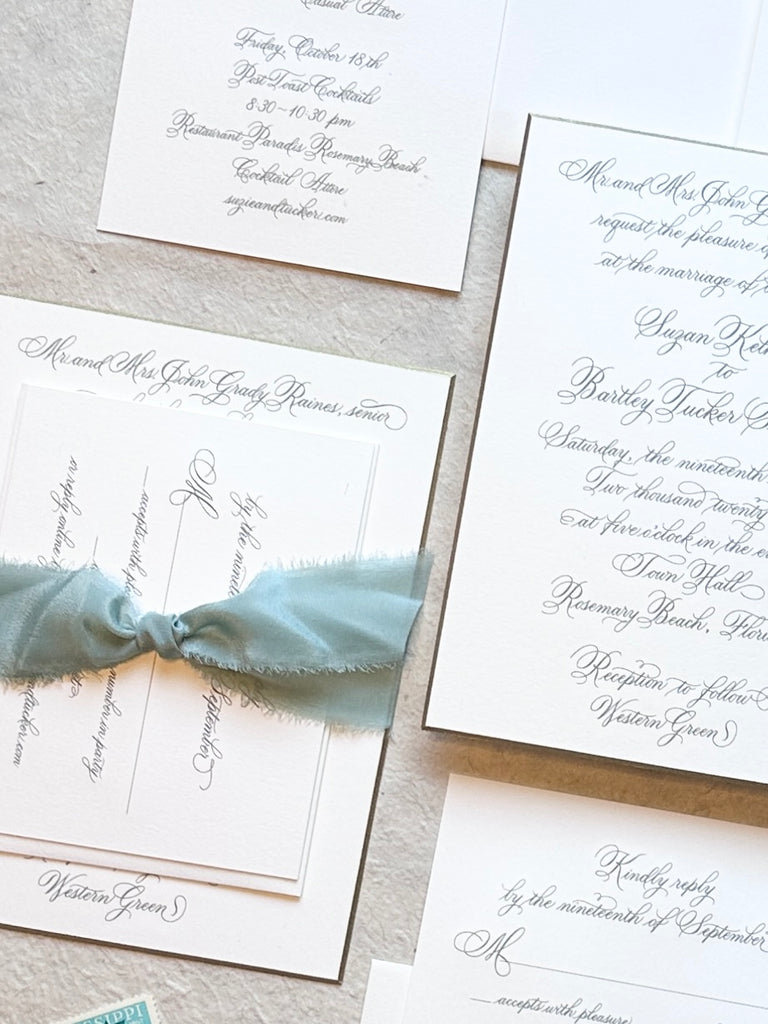 Casual Attire
Friday, October 18th
Post Toast Cocktails
8:30 – 10:30 pm
Restaurant Paradis Rosemary Beach
Cocktail Attire
suzieandtucker.com
Mr. and Mrs. John
request the pleasure
at the marriage of
Suzan
to
Bartley Tucker
Saturday, the nineteenth
Two thousand twenty
at five o'clock in the
Town Hall
Rosemary Beach,
Reception to follow
Western Green
Mr. and Mrs. John Grady Raines, senior
by the
September
M
accepts with
number in party
or reply online
Western Green
Kindly reply
by the nineteenth of September
M
accepts with pleasure